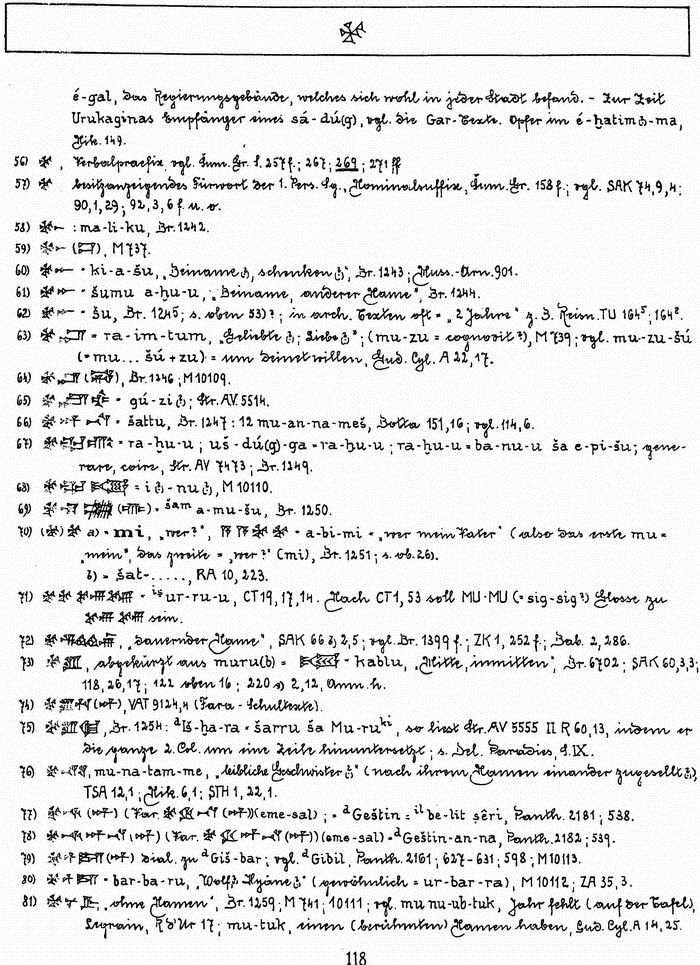 é-gal, das Regierungsgebäude, welches sich wohl in jeder Stadt befand. - Zur Zeit
Urukaginas Empfänger eines sá-dú(g), vgl. die Gar-Texte. Opfer im é-ḫatim -ma,
Nik. 149.
56) 𒈬, Verbalpraefix, vgl. Šum. Gr. S. 257 f.; 267; 269; 271 ff
57) 𒈬 besitzanzeigendes Fürwort der 1. Pers. Sg., Nominalsuffix, Šum. Gr. 158 f.; vgl. SAK 74,9,4;
90,1,29; 92,3,6 f. u. o.
58) : ma-li-ku, Br. 1242.
59) M 737.
60) = ki-a-šu, „Beiname, schenken", Br. 1243; Muss.-Arn. 901.
61) = šumu a-ḫu-u, „Beiname, anderer Name", Br. 1244.
62) = šu, Br. 1245; s. oben 53)?; in arch. Texten oft = „2 Jahre" z. B. Reisn. TU 164⁵; 164⁸.
63) = ra-im-tum, „Geliebte; Liebe"; (mu-zu = cognovit?), M 739; vgl. mu-zu-šú
(= mu... šú + zu) = um deinetwillen, Gud. Cyl. A 22,17.
64) Br. 1246; M 10109.
65) = gú-zi; Str. AV. 5514.
66) = šattu, Br. 1247: 12 mu-an-na-meš, Botta 151,16; vgl. 114,6.
67) = ra-ḫu-u; uš-dú(g)-ga = ra-ḫu-u; ra-ḫu-u = ba-nu-u ša e-pi-šu; gene-
rare, coire, Str. AV 7473; Br. 1249.
68) = i -nu, M 10110.
69) = šam a-mu-šu, Br. 1250.
70) a) = mi, „wer?", = a-bi-mi = „wer mein Vater" (also das erste mu =
„mein", das zweite = „wer?" (mi), Br. 1251; s. ob. 26).
b) = šat-....., RA 10, 223.
71) = iṣ ur-ru-u, CT 19,17,14. Nach CT 1, 53 soll MU·MU (= sig-sig?) Glosse zu
sein.
72) „dauernder Name", SAK 66, 2,5; vgl. Br. 1399 f.; ZK 1, 252 f.; Bab. 2, 286.
73) abgekürzt aus muru(b) = = kablu, „Mitte, inmitten", Br. 6702; SAK 60,3,3;
118,26,17; 122 oben 16; 220 2,12, Anm. h.
74) VAT 9124,4 (Fara-Schultexte).
75) Br. 1254: ᵈIš-ḫa-ra = šarru ša Mu-ruᵏⁱ, so liest Str. AV 5555 II R 60,13, indem er
die ganze 2. Col. um eine Zeile hinuntersetzt; s. Del. Paradies, S. IX.
76) mu-na-tam-me, „leibliche Geschwister" (nach ihrem Namen einander zugesellt?),
TSA 12,1; Nik. 6,1; STH 1, 22,1.
77) (Var. ) (eme-sal); = ᵈGeštin = il be-lit ṣêri, Panth. 2181; 538.
78) (Var. ) (eme-sal) = ᵈGeštin-an-na, Panth. 2182; 539.
79) dial. zu ᵈGiš-bar; vgl. ᵈGibil, Panth. 2161; 627-631; 598; M 10113.
80) = bar-ba-ru, „Wolf, Hyäne" (gewöhnlich = ur-bar-ra), M 10112; ZA 35,3.
81) „ohne Namen", Br. 1259; M 741; 10111; vgl. mu nu-ub-tuk, Jahr fehlt (auf der Tafel),
Legrain, R d'Ur 17; mu-tuk, einen (berühmten) Namen haben, Gud. Cyl. A 14,25.
118